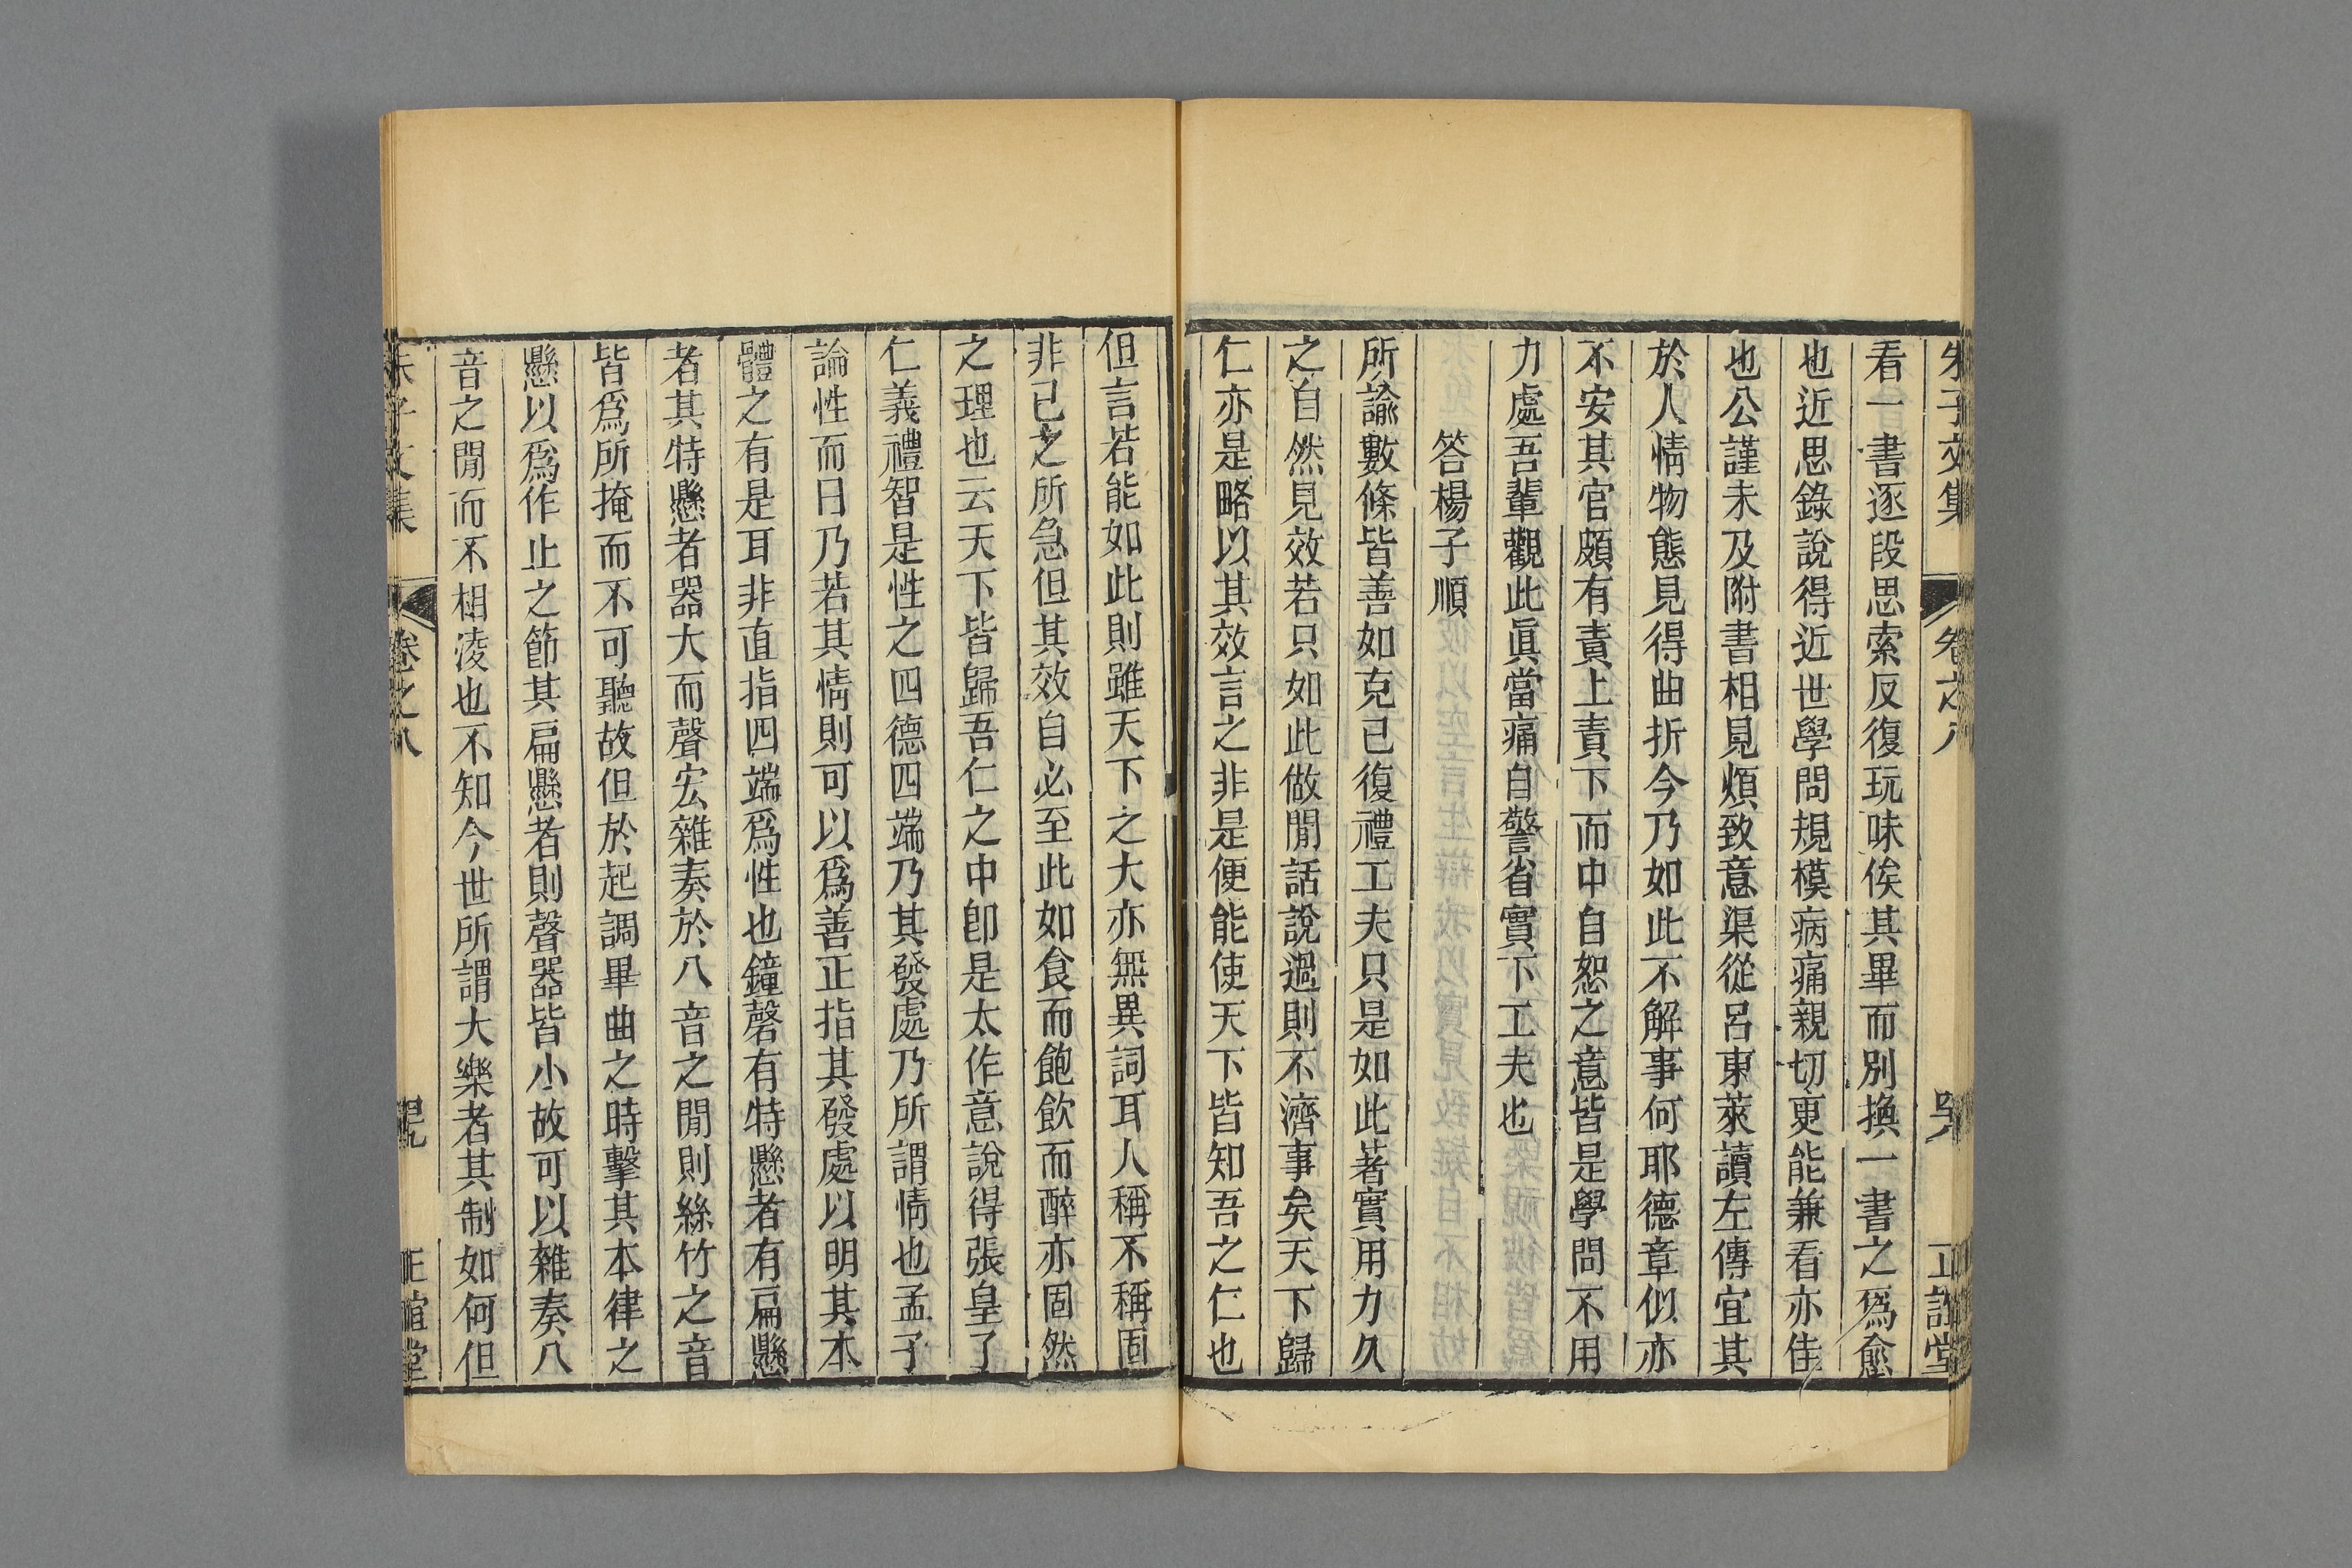 朱子文集 卷之八 正誼堂
看一書逐段思索反復玩味俟其畢而別換一書之爲愈
也近思錄說得近世學問規模病痛親切更能兼看亦佳
也公謹未及附書相見煩致意渠從呂東萊讀左傳宜其
於人情物態見得曲折今乃如此不解事何耶德章似亦
不安其官頗有責上責下而中自恕之意皆是學問不用
力處吾輩觀此眞當痛自警省實下工夫也
答楊子順
所諭數條皆善如克己復禮工夫只是如此著實用力久
之自然見效若只如此做閒話說過則不濟事矣天下歸
仁亦是略以其效言之非是便能使天下皆知吾之仁也
但言若能如此則雖天下之大亦無異詞耳人稱不稱固
非己之所急但其效自必至此如食而飽飲而醉亦固然
之理也云天下皆歸吾仁之中卽是太作意說得張皇了
仁義禮智是性之四德四端乃其發處乃所謂情也孟子
論性而曰乃若其情則可以爲善正指其發處以明其本
體之有是耳非直指四端爲性也鐘磬有特懸者有扁懸
者其特懸者器大而聲宏雜奏於八音之閒則絲竹之音
皆爲所掩而不可聽故但於起調畢曲之時擊其本律之
懸以爲作止之節其扁懸者則聲器皆小故可以雜奏八
音之閒而不相淩也不知今世所謂大樂者其制如何但
朱子文集 卷之八 正誼堂